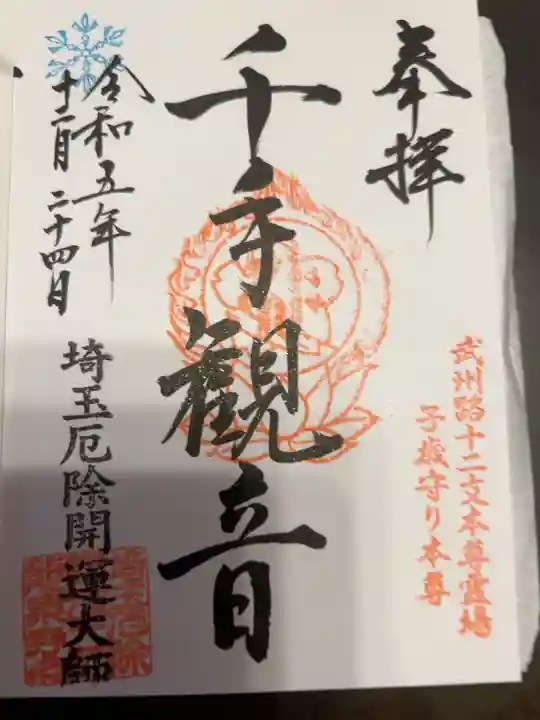 奉拝
武州路十二支本尊霊場
子歳守り本尊
千手観音
令和五年
十二月二十四日
埼玉厄除開運大師